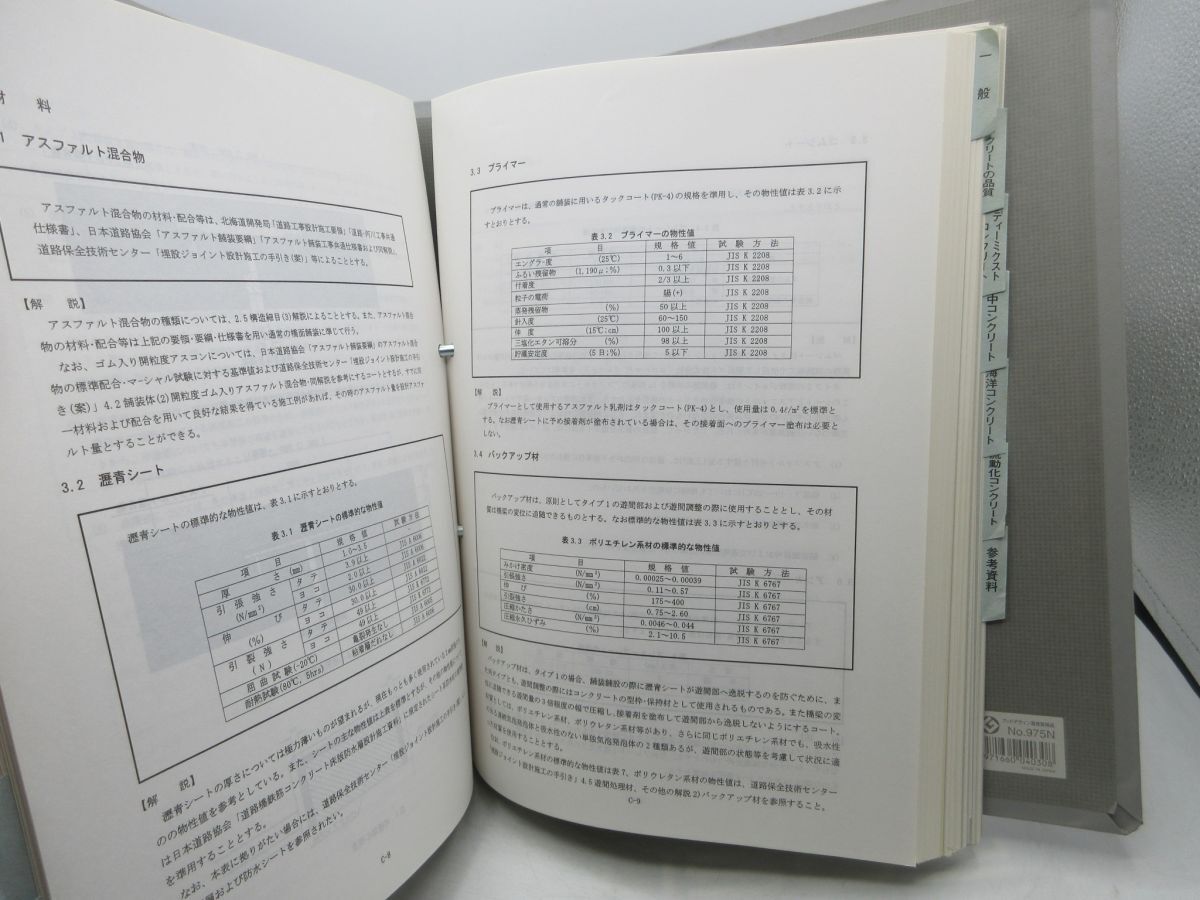 材 料
1 アスファルト混合物
アスファルト混合物の材料・配合等は、北海道開発局「道路工事設計施工要領」「道路・河川工事共通
仕様書」、日本道路協会「アスファルト舗装要綱」「アスファルト舗装工事共通仕様書および同解説」、
道路保全技術センター「埋設ジョイント設計施工の手引き(案)」等によることとする。
【解 説】
アスファルト混合物の種類については、2.5構造細目(3)解説によることとする。また、アスファルト混合
物の材料・配合等は上記の要領・要綱・仕様書を用い通常の橋面舗装に準じて行う。
なお、ゴム入り開粒度アスコンについては、日本道路協会「アスファルト舗装要綱」のアスファルト混合
物の標準配合・マーシャル試験に対する基準値および道路保全技術センター「埋設ジョイント設計施工の手引
き(案)」4.2舗装体(2)開粒度ゴム入りアスファルト混合物・同解説を参考にするコートとするが、すでに同
一材料および配合を用いて良好な結果を得ている施工例があれば、その時のアスファルト量を設計アスファ
ルト量とすることができる。
3.2 瀝青シート
瀝青シートの標準的な物性値は、表3.1に示すとおりとする。
表3.1 瀝青シートの標準的な物性値
項 目 規 格 値 試 験 方 法
厚 さ (mm) 1.0～3.5 -
引 張 強 さ タテ 3.9以上 JIS A 6006
(N/mm²) ヨコ 2.0以上
伸 び タテ 30.0以上
(%) ヨコ 30.0以上
引 裂 強 さ タテ 49以上
(N) ヨコ 49以上
屈曲試験(-20℃) 亀裂発生なし
耐熱試験(80℃, 5hrs) 粘着層だれなし
【解 説】
瀝青シートの厚さについては極力薄いものが望まれるが、現在もっとも多く使用されている
のの物性値を参考としている。また、シートの主な物性値は上表を標準とするが、その他の物性値について
は日本道路協会「道路橋鉄筋コンクリート床版防水層設計施工資料」に規定されたシート系防水層の規格
を準用することとする。
なお、本表に拠りがたい場合には、道路保全技術センター「埋設ジョイント設計施工の手引き
および防水シートを参照されたい。
C-8
3.3 プライマー
プライマーは、通常の舗装に用いるタックコート(PK-4)の規格を準用し、その物性値は表3.2に示
すとおりとする。
表3.2 プライマーの物性値
項 目 規 格 値 試 験 方 法
エングラ-度 (25℃) 1～6 JIS K 2208
ふるい残留物 (1,190μ;%) 0.3以下 JIS K 2208
付着度 2/3以上 JIS K 2208
粒子の電荷 陽(+) JIS K 2208
蒸発残留物 (%) 50以上 JIS K 2208
針入度 (25℃) 60～150 JIS K 2208
伸 度 (15℃;cm) 100以上 JIS K 2208
三塩化エタン可溶分 (%) 98以上 JIS K 2208
貯蔵安定度 (5日;%) 5以下 JIS K 2208
【解 説】
プライマーとして使用するアスファルト乳剤はタックコート(PK-4)とし、使用量は0.4ℓ/m²を標準と
する。なお瀝青シートに予め接着剤が塗布されている場合は、その接着面へのプライマー塗布は必要と
しない。
3.4 バックアップ材
バックアップ材は、原則としてタイプ1の遊間部および遊間調整の際に使用することとし、その材
質は橋梁の変位に追随できるものとする。なお標準的な物性値は表3.3に示すとおりとする。
表3.3 ポリエチレン系材の標準的な物性値
項 目 規 格 値 試 験 方 法
みかけ密度 (N/mm³) 0.00025～0.00039 JIS K 6767
引張強さ (N/mm²) 0.11～0.57 JIS K 6767
伸 び (%) 175～400 JIS K 6767
引裂強さ (cm) 0.75～2.60 JIS K 6767
圧縮かたさ (N/mm²) 0.0046～0.044 JIS K 6767
圧縮永久ひずみ (%) 2.1～10.5 JIS K 6767
【解 説】
バックアップ材は、タイプ1の場合、舗装舗設の際に瀝青シートが遊間部へ逸脱するのを防ぐために、ま
た両タイプとも、遊間調整の際にはコンクリートの型枠・保持材として使用されるものである。また橋梁の変
位に追随できる遊間量の3倍程度の幅で圧縮し、接着剤を塗布して遊間部から逸脱しないようにするコート。
材質としては、ポリエチレン系材、ポリウレタン系材等があり、さらに同じポリエチレン系材でも、吸水性
のある連続気泡発泡体と吸水性のない単独気泡発泡体の2種類あるが、遊間部の状態等を考慮して状況に適
した材質を使用することとする。
なお、ポリエチレン系材の標準的な物性値は表7、ポリウレタン系材の物性値は、道路保全技術センター
「埋設ジョイント設計施工の手引き」4.5遊間処理材、その他の解説2)バックアップ材を参照すること。
C-9
一 般
クリートの品質
ディーミクスト
コンクリート
中コンクリート
海洋コンクリート
流動化コンクリート
参考資料
No.975N
971660 040308